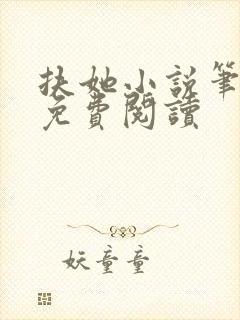 扶她小說筆
免費閱讀
妖童童